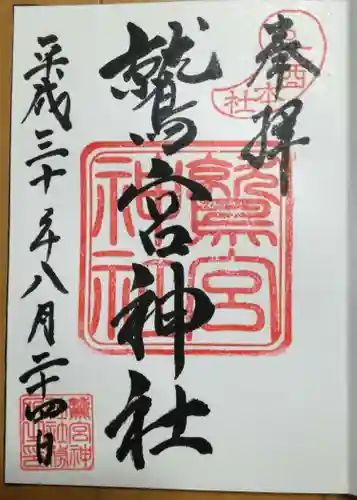 奉拝
鷲宮神社
平成三十年八月二十四日
鷲宮
神社